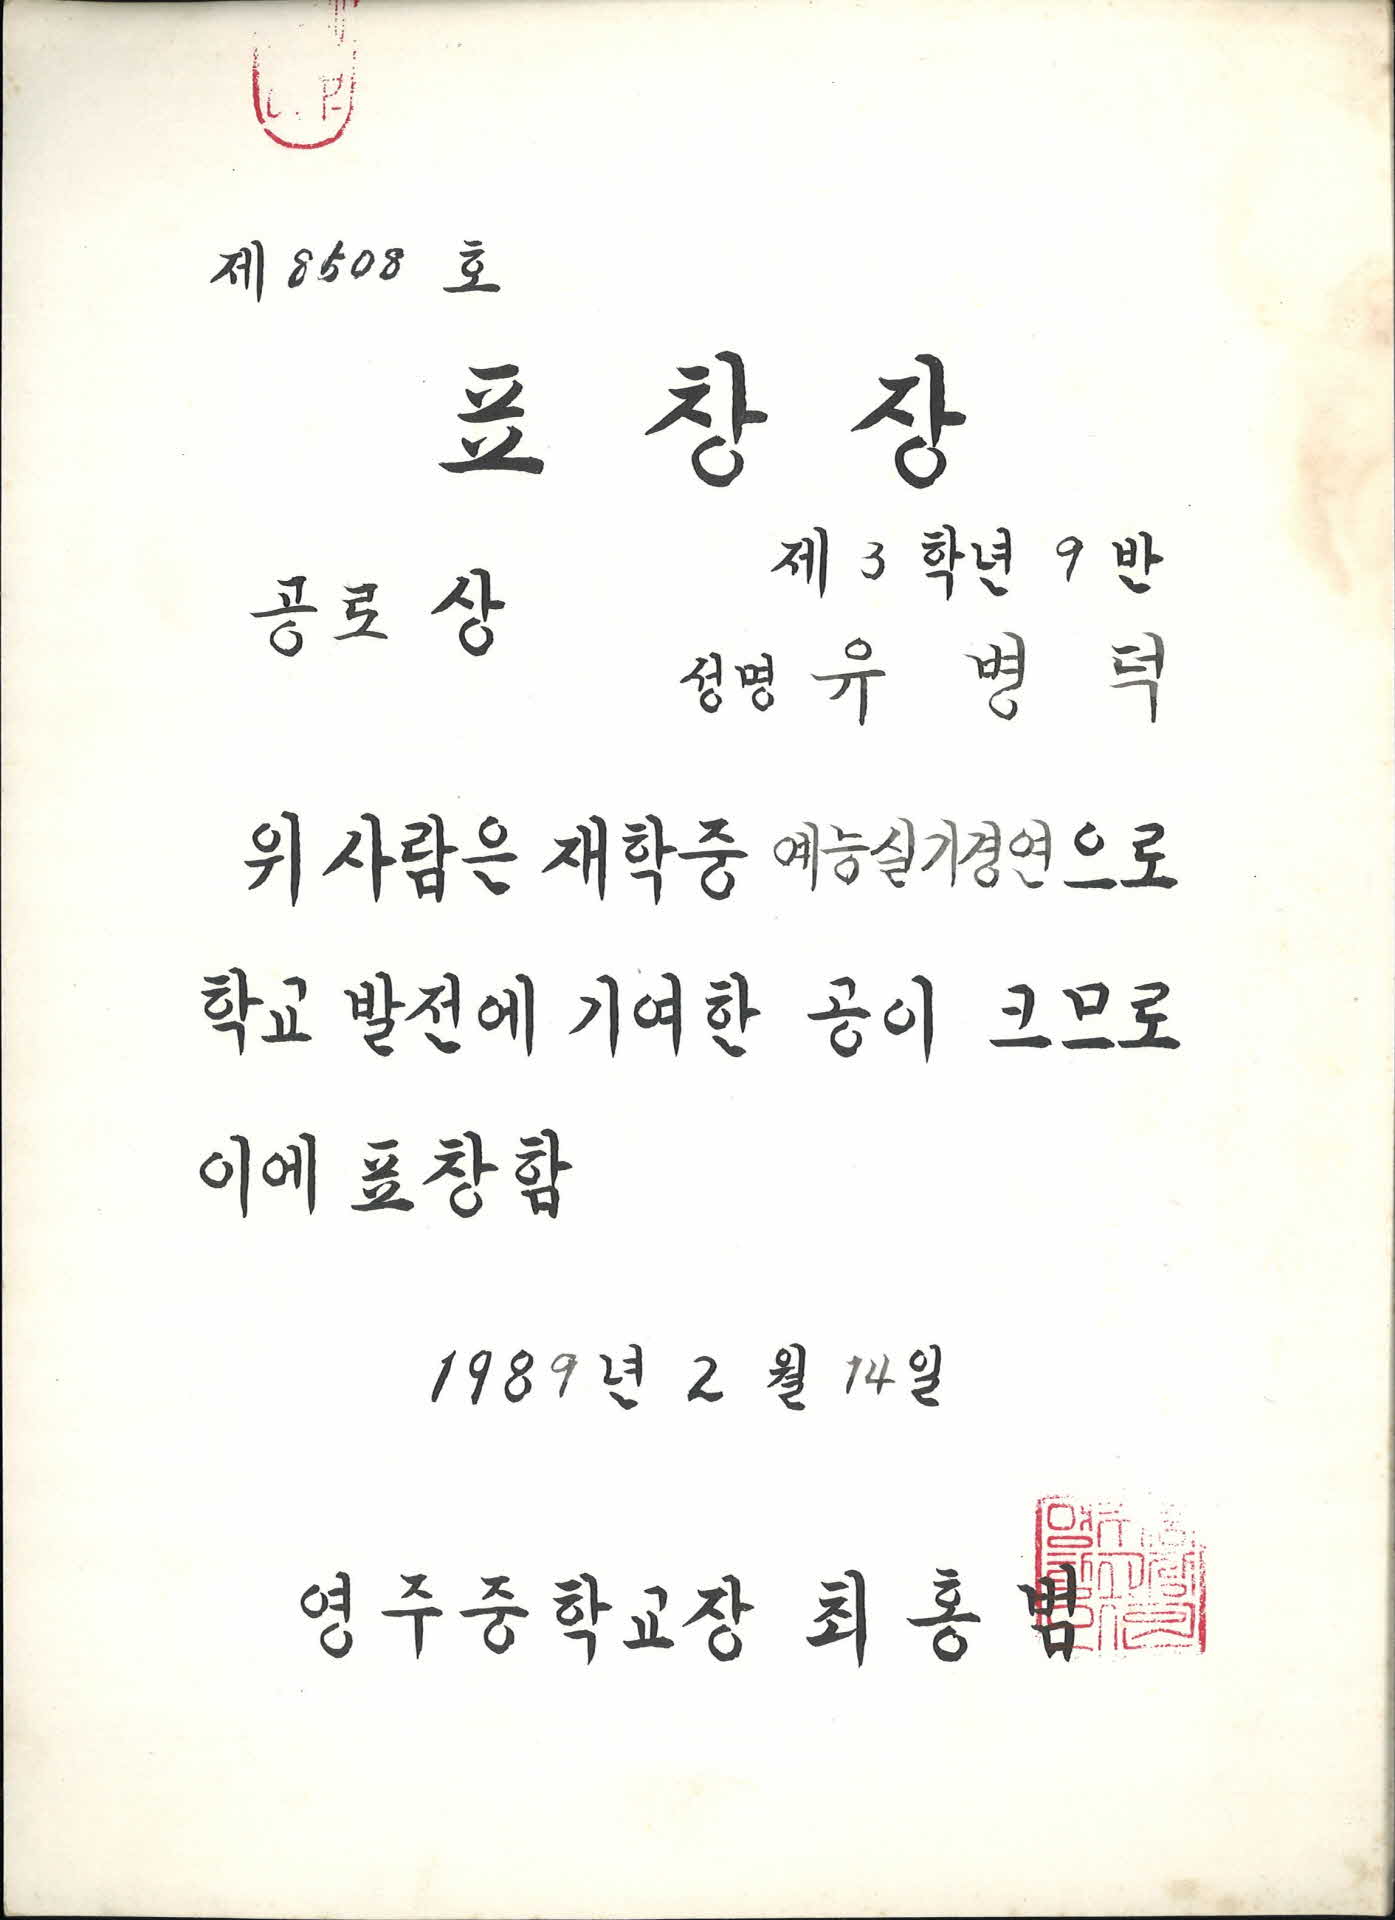 제 8508 호
표 창 장
공로 상
제 3 학년 9 반
성명 유 병 덕
위 사람은 재학중 예능실기경연으로
학교 발전에 기여한 공이 크므로
이에 표창함
1989년 2 월 14일
영주중학교장 최홍범